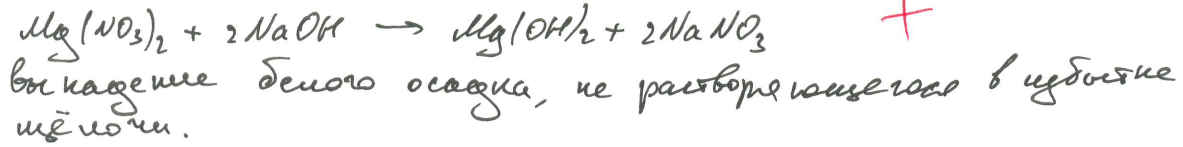 Mg(NO₃)₂ + 2NaOH → Mg(OH)₂ + 2NaNO₃ +
выпадение белого осадка, не растворяющегося в избытке
щёлочи.